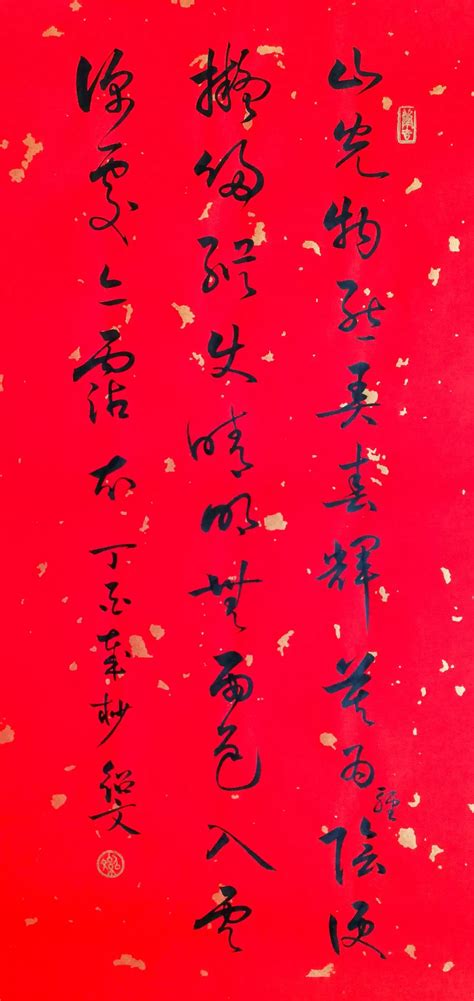 山光物態弄春輝莫為輕陰便
擬歸縱使晴明無雨色入雲
深處亦霑衣丁酉歲杪紹文